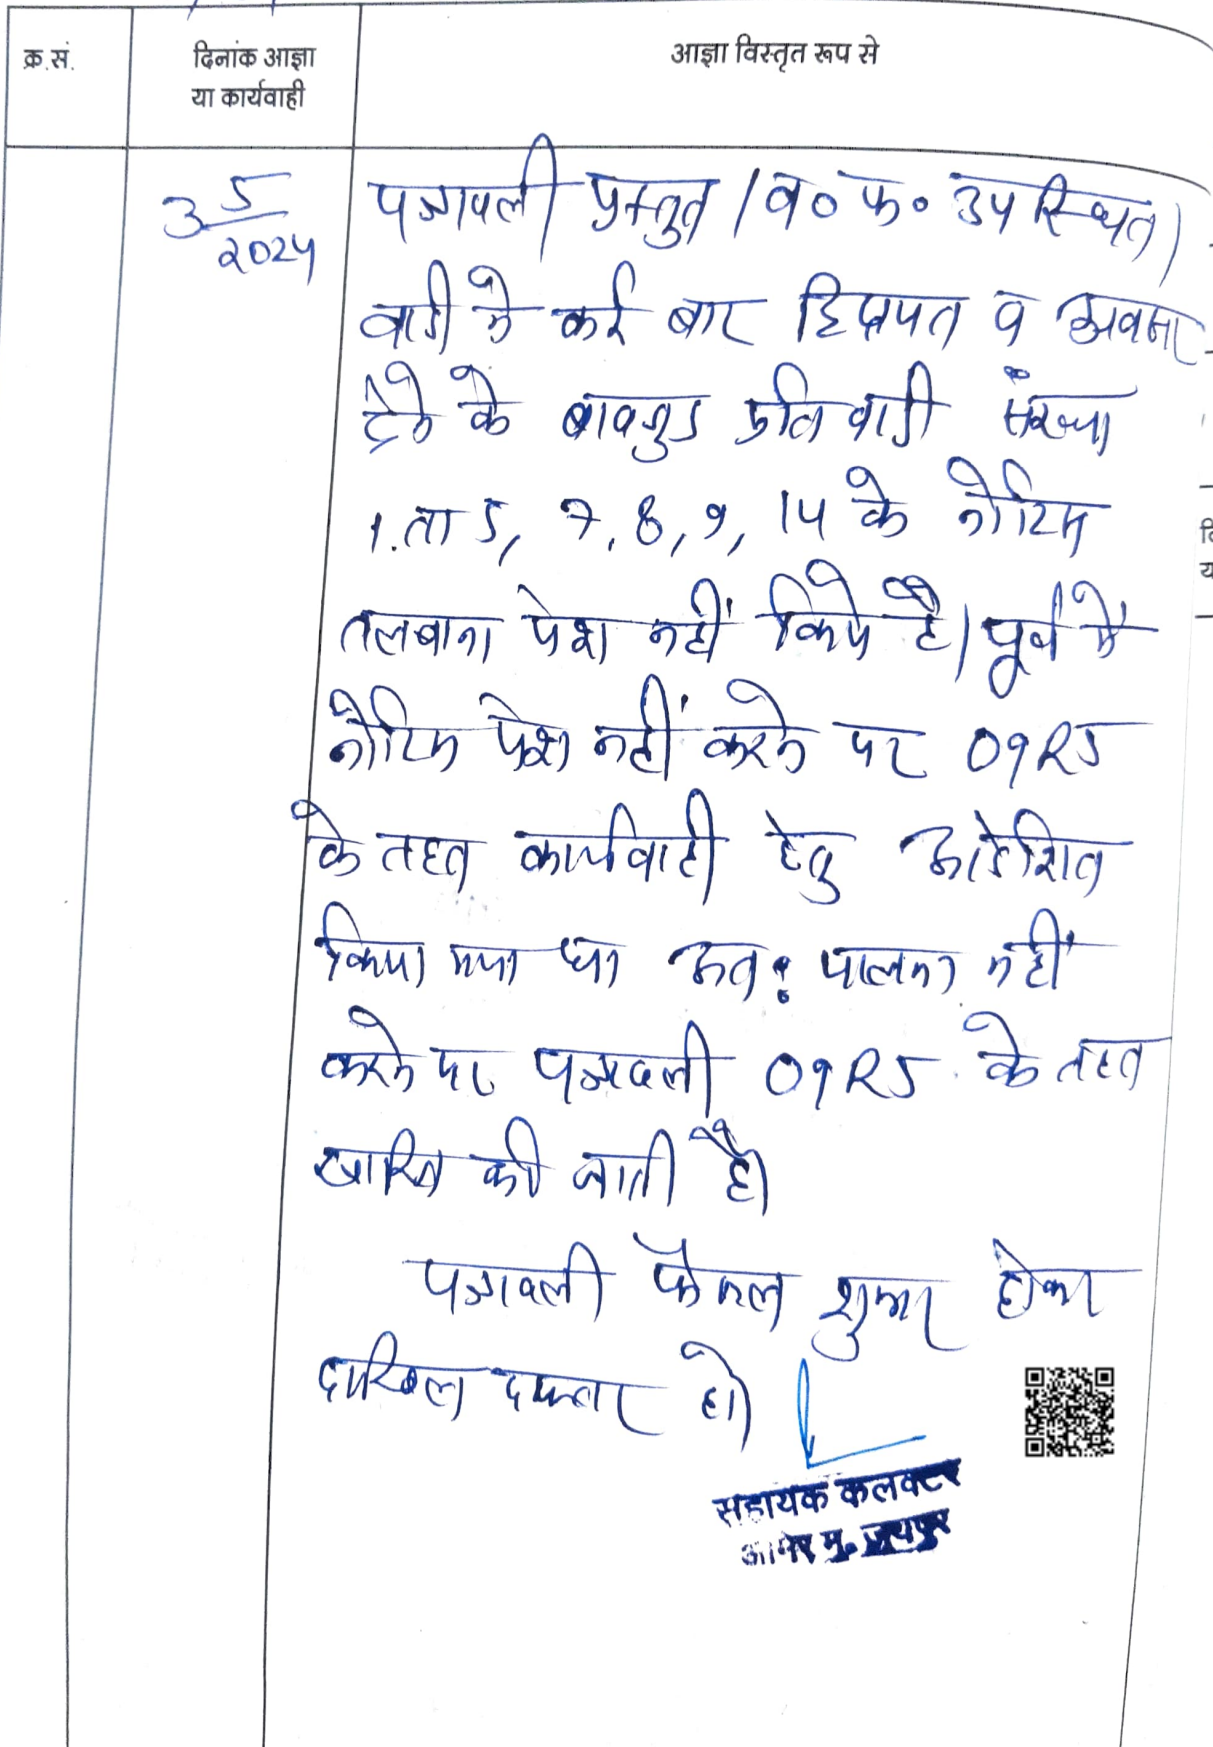 क्र.सं.
दिनांक आज्ञा
या कार्यवाही
आज्ञा विस्तृत रूप से
3 5/2024
पत्रावली प्रस्तुत। व० फ० उपस्थित।
वादी को कई बार हिदायत व अवसर
देने के बावजूद प्रतिवादी संख्या
1 ता 5, 7, 8, 9, 14 के नोटिस
तलबाना पेश नहीं किये है। पूर्व में
नोटिस पेश नहीं करने पर O9R5
के तहत कार्यवाही हेतु आदेशित
किया गया था अतः पालना नहीं
करने पर पत्रावली O9R5 के तहत
खारिज की जाती है।
पत्रावली फैसल शुमार होकर
दाखिल दफ्तर हो।
सहायक कलक्टर
आमेर मु. जयपुर